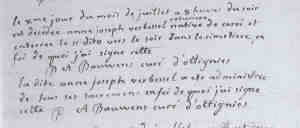 le 2me jour du mois de juillet a 8 heures du soir
est decedée anne joseph verbessel native de curoi et
enterrée le 3 dito vers le soir dans le cimetiere, en
foi de quoi j'ai signe cette
P A Bauwens curé d'ottignies
la dite anne joseph verbessel a eté administrée
de tous ses sacremens en foi de quoi j'ai signe
cette P A Bauwens curé d'ottignies